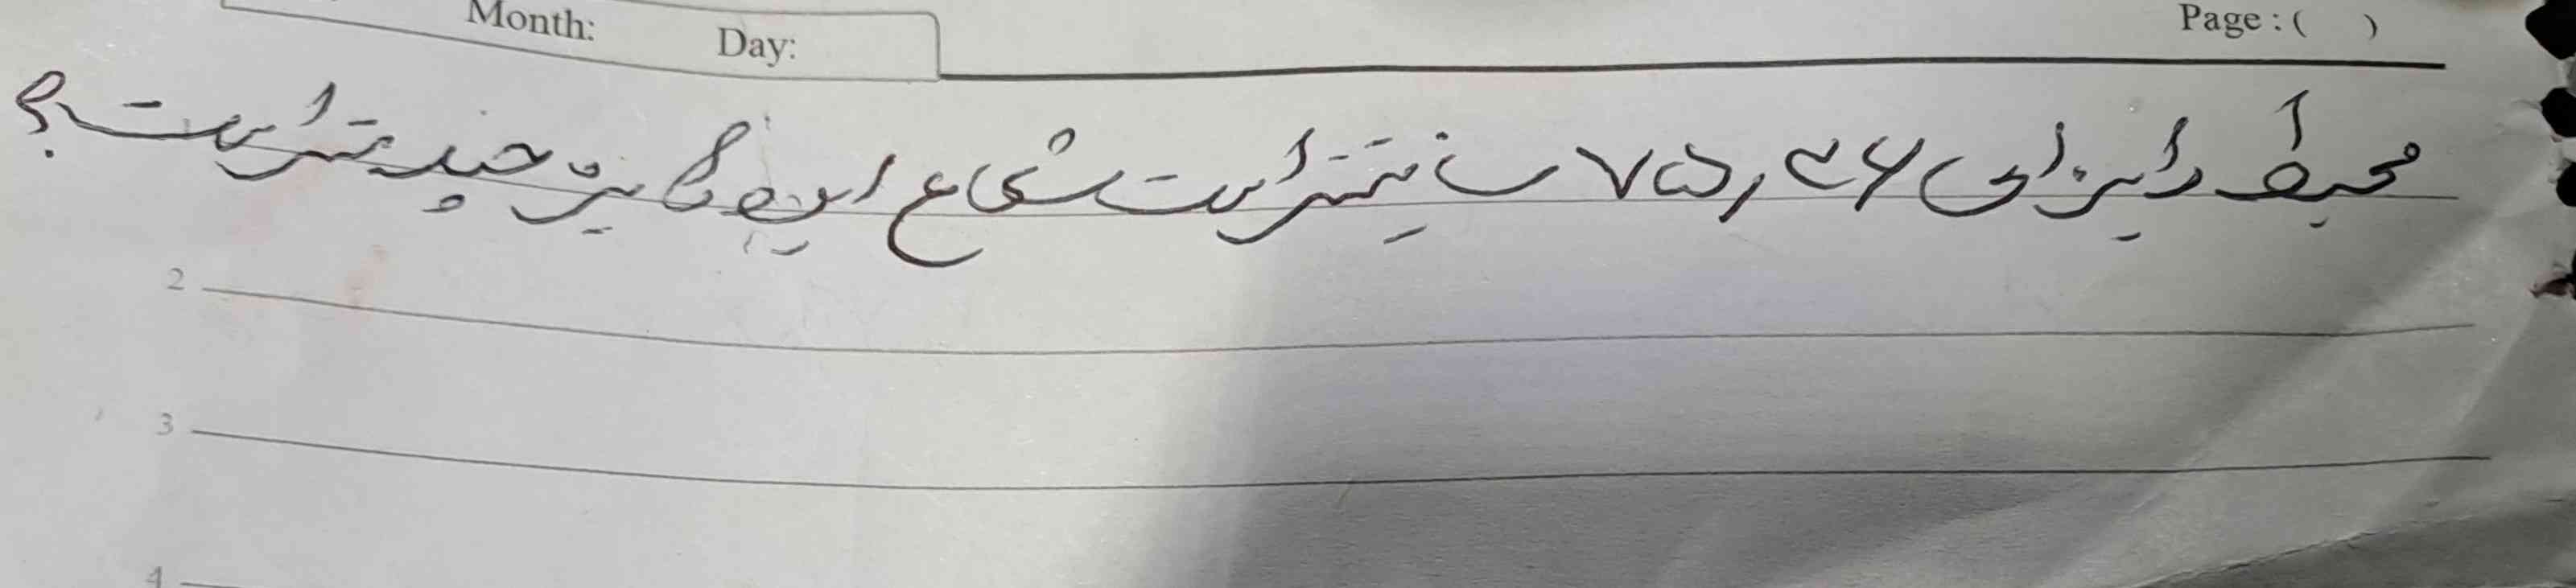 Month: Day: Page : ( )
محیط دایره ای ۷۵٫۳۶ سانتیمتر است شعاع این دایره چند متر است؟
2
3
4